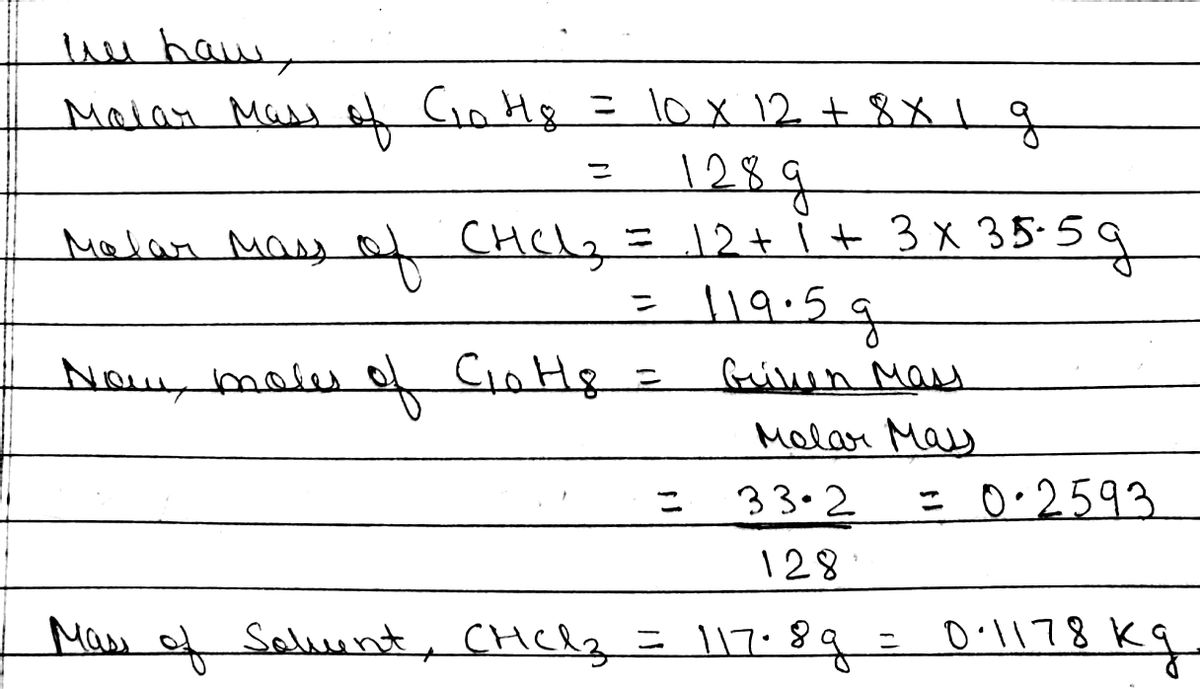 We have,
Molar Mass of C₁₀H₈ = 10 × 12 + 8 × 1 g
= 128 g
Molar Mass of CHCl₃ = 12 + 1 + 3 × 35.5 g
= 119.5 g
Now, moles of C₁₀H₈ = Given Mass
Molar Mass
= 33.2 = 0.2593
128
Mass of Solvent, CHCl₃ = 117.8g = 0.1178 Kg.